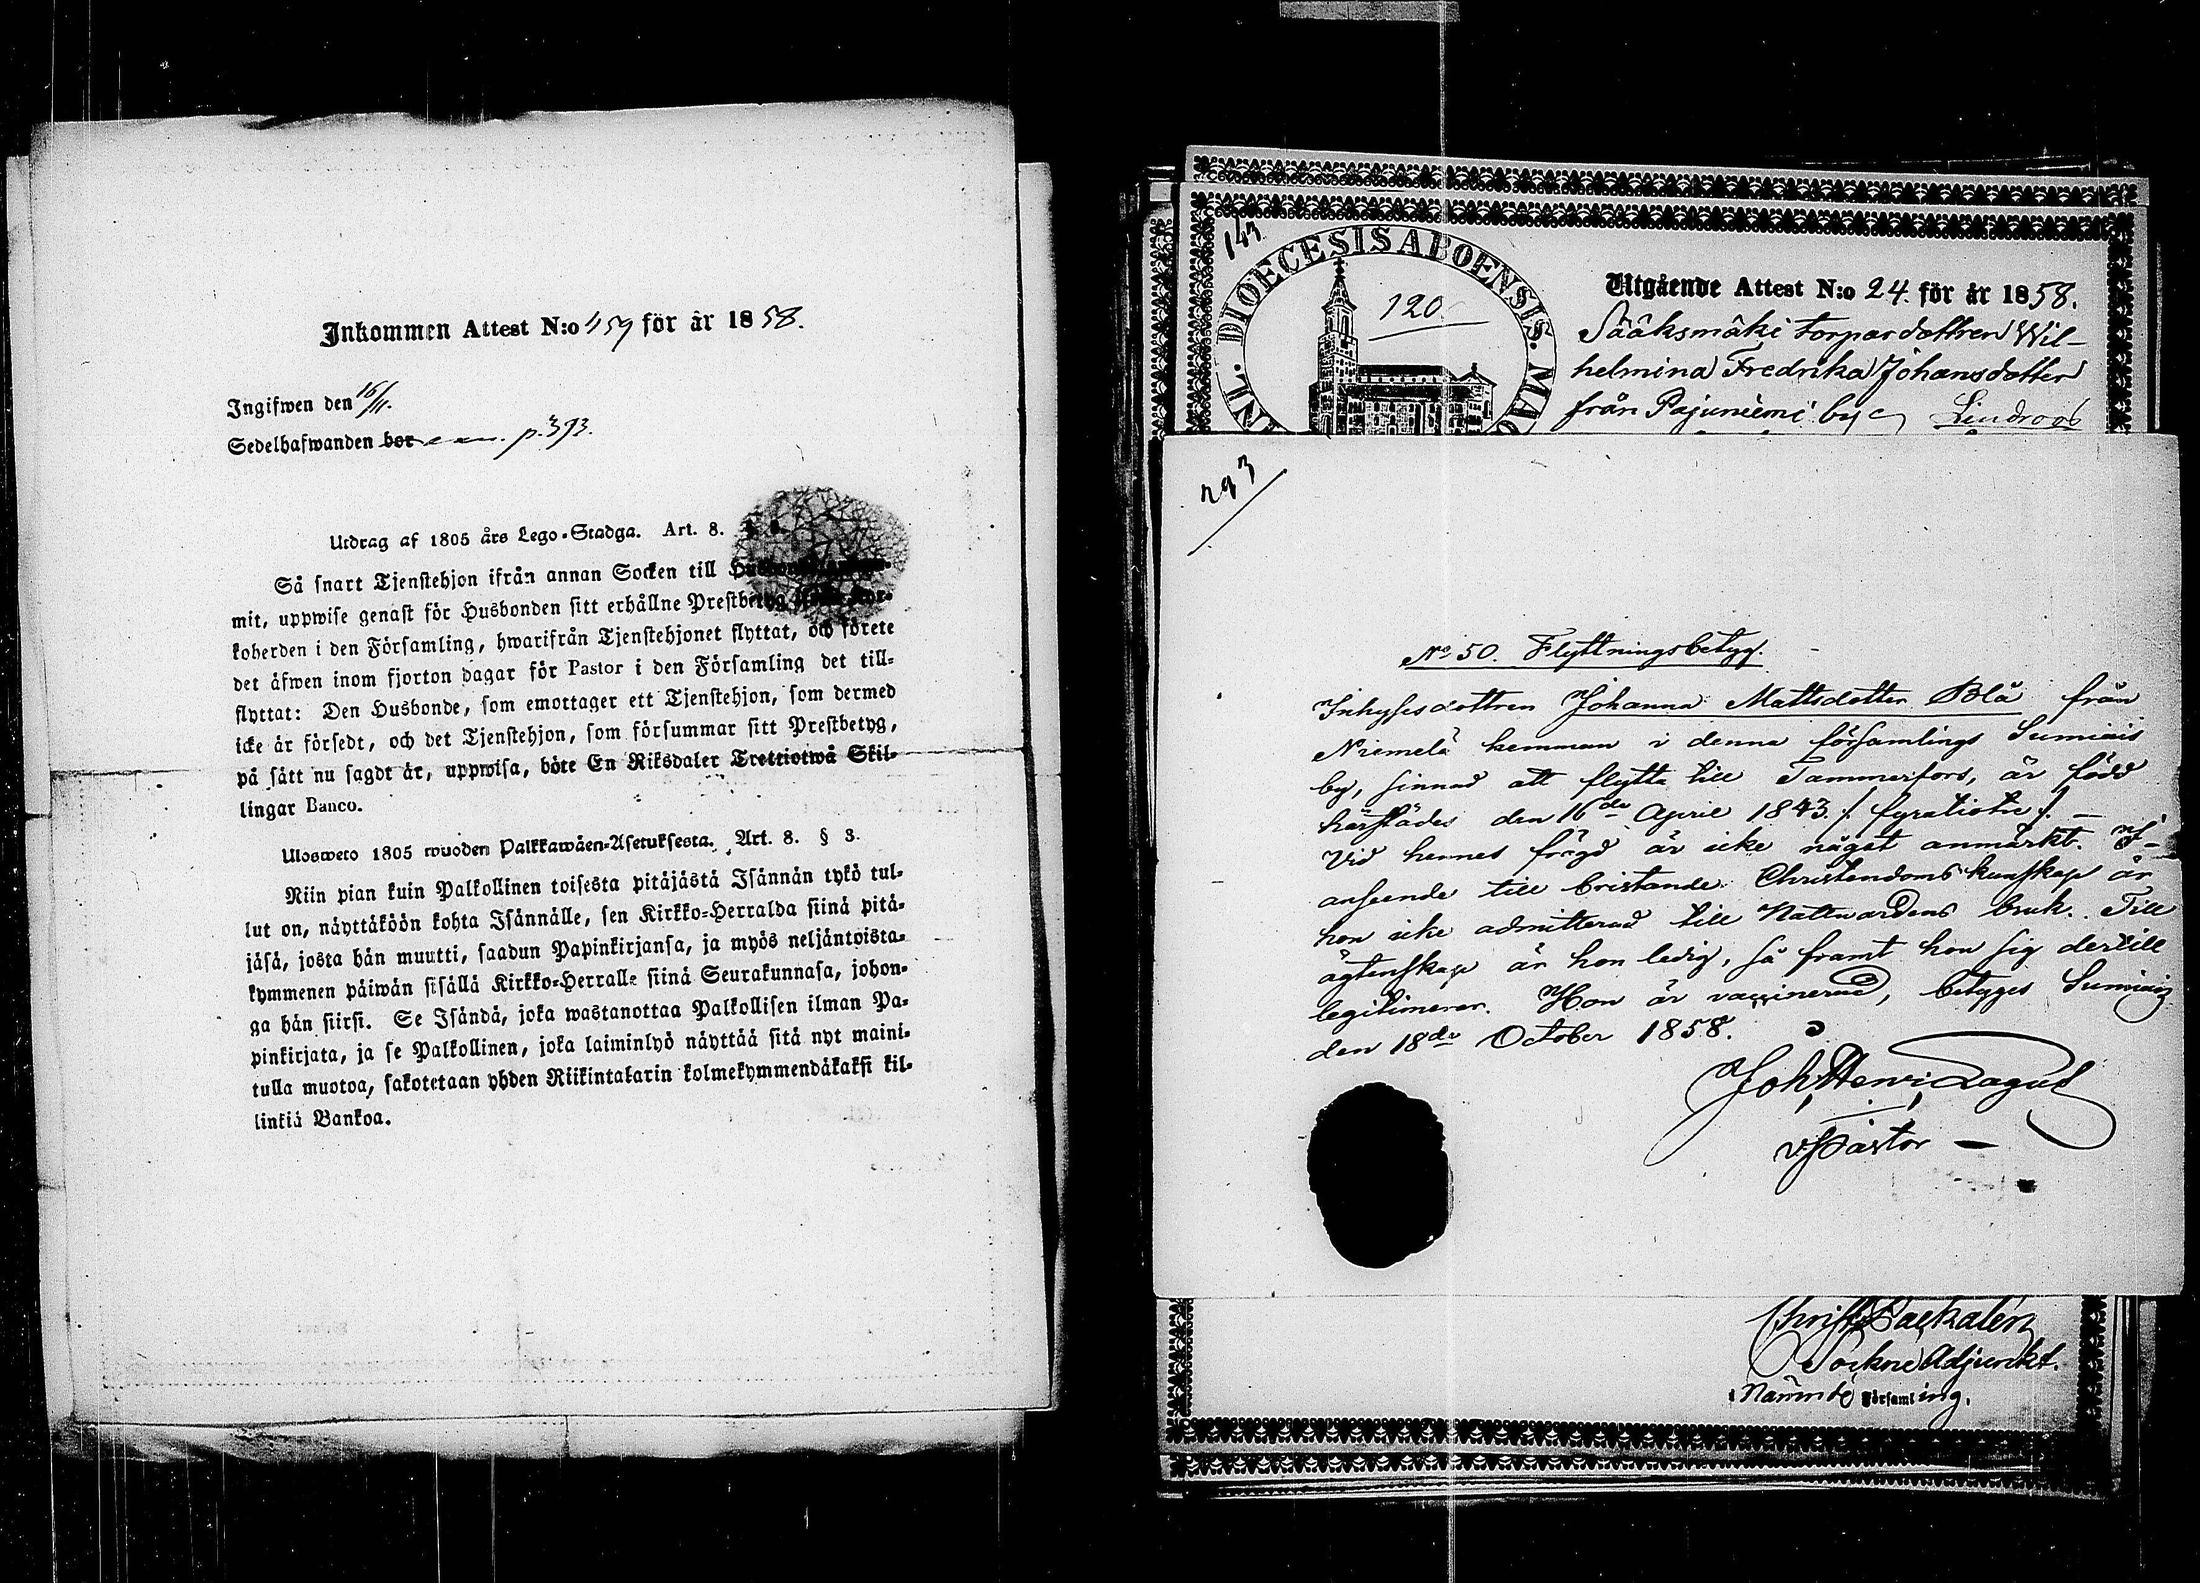 Inkommen Attest N:o 459 för år 1858.
Ingifwen den 16/11.
Sedelhafwanden bor p. 393.
Utdrag af 1805 års Lego-Stadga. Art. 8.
Så snart Tjenstehjon ifrån annan Socken till
mit, uppwise genast för Husbonden sitt erhållne Prestbetyg
koherden i den Församling, hwarifrån Tjenstehjonet flyttat, och förete
det äfwen inom fjorton dagar för Pastor i den Församling det till-
flyttat: Den Husbonde, som emottager ett Tjenstehjon, som dermed
icke är försedt, och det Tjenstehjon, som försummar sitt Prestbetyg,
på sätt nu sagdt är, uppwisa, böte En Riksdaler Trettiotwå Skil-
lingar Banco.
Ulosweto 1805 wuoden Palkkawäen-Asetuksesta. Art. 8. § 3.
Niin pian kuin Palkollinen toisesta pitäjästä Isännän tykö tul-
lut on, näyttäköön kohta Isännälle, sen Kirkko-Herralda siinä pitä-
jäsä, josta hän muutti, saadun Papinkirjansa, ja myös neljäntoista-
kymmenen päiwän sisällä Kirkko-Herralle siinä Seurakunnasa, johon-
ga hän siirsi. Se Isändä, joka wastanottaa Palkollisen ilman Pa-
pinkirjata, ja se Palkollinen, joka laiminlyö näyttää sitä nyt maini-
tulla muotoa, sakotetaan yhden Riikintalarin kolmekymmendäkaksi kil-
linkiä Bankoa.
143
DIOECESIS ABOENSIS.
120
Utgående Attest N:o 24. för år 1858.
Sääksmäki torpardottren Wil-
helmina Fredrika Johansdotter
från Pajuniemi by Lindroos
293
No 50. Flyttningsbetyg.
Inhysesdottren Johanna Mattsdotter Blå från
Niemelä hemman i denna församlings Sumiais
by, sinnad att flytta till Tammerfors, är född
härstädes den 16de April 1843 /: fyratiotre :/. —
Vid hennes frägd är icke något anmärkt. I
anseende till bristande Christendoms kunskap är
hon icke admitterad till Nattwardens bruk. Till
ägtenskap är hon ledig, så framt hon sig dertill
legitimerar. Hon är vaccinerad, betyges Sumiais
den 18de October 1858.
Joh. Henr. Lagus
v. Pastor —
Sockne Adjunkt.
i Nämnde Församling.